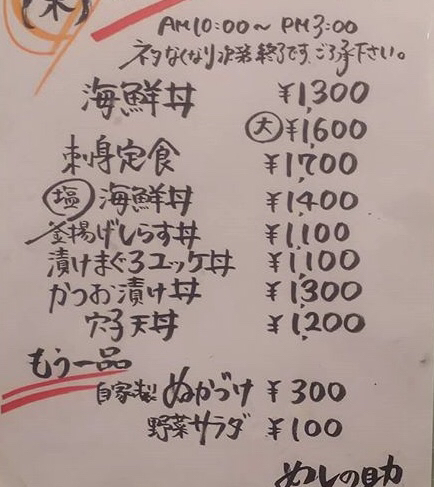 (木)
AM10:00～PM3:00
ネタなくなり次第終了です。ご了承下さい。
海鮮丼 ¥1,300
大 ¥1,600
刺身定食 ¥1,700
塩 海鮮丼 ¥1,400
釜揚げしらす丼 ¥1,100
漬けまぐろユッケ丼 ¥1,100
かつお漬け丼 ¥1,300
穴子天丼 ¥1,200
もう一品
自家製 ぬかづけ ¥300
野菜サラダ ¥100
めしの助